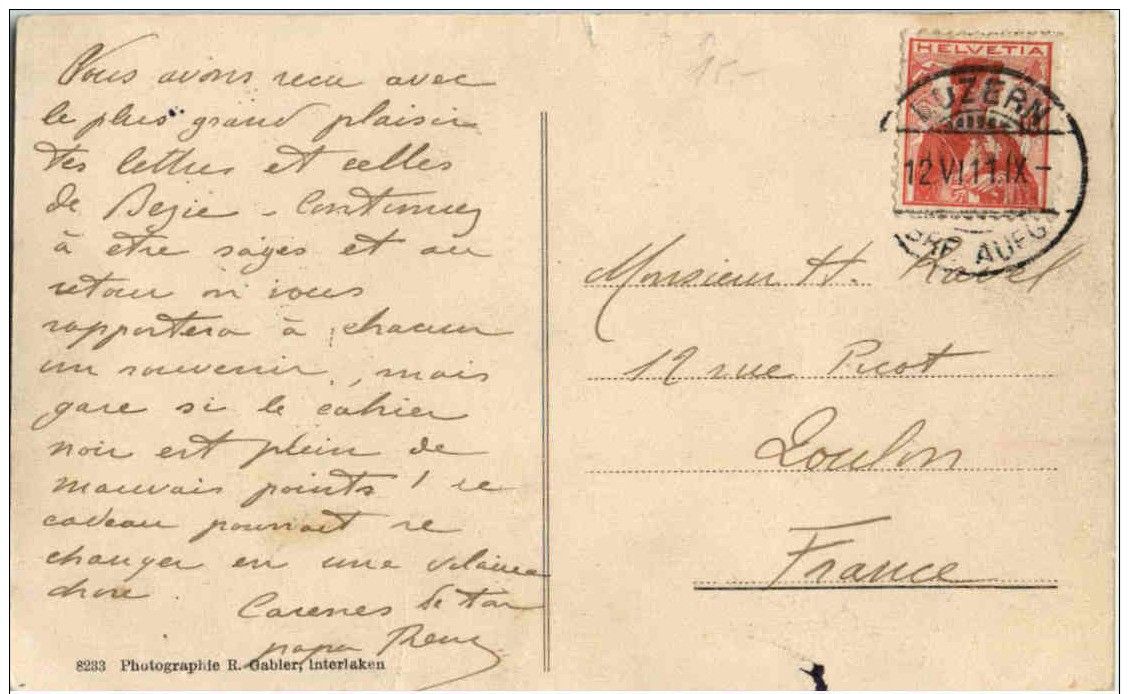 Nous avons reçu avec
le plus grand plaisir
tes lettres et celles
de - Continuez
à etre sages et au
retour on vous
rapportera à chacun
un souvenir, mais
gare si le cahier
noir est plein de
mauvais points ! le
cadeau pourrait se
changer en une vilaine
chose.
Caresses de ton
papa
8233 Photographie R. Gabler, Interlaken
15-
HELVETIA
LUZERN
12 VI 11. IX -
BRF. AUFG.
Monsieur H. Ravel
12 rue Picot
Toulon
France